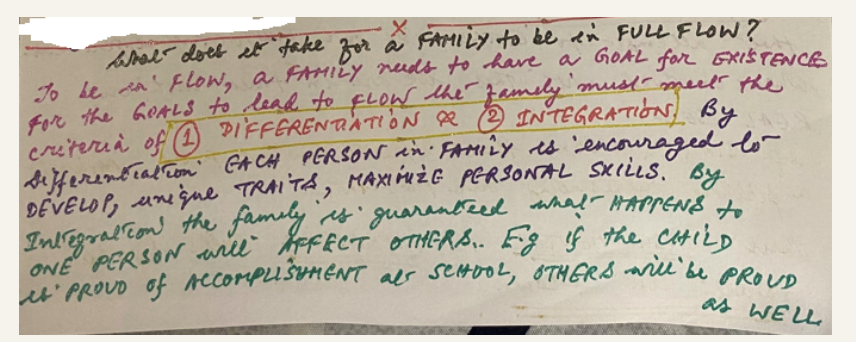 What does it take for a FAMILY to be in FULL FLOW?
To be in FLOW, a FAMILY needs to have a GOAL for EXISTENCE
FOR the GOALS to lead to FLOW the family must meet the
criteria of ① DIFFERENTIATION & ② INTEGRATION. By
differentiation EACH PERSON in FAMILY is encouraged to
DEVELOP, unique TRAITS, MAXIMIZE PERSONAL SKILLS. By
Integration the family is guaranteed what HAPPENS to
ONE PERSON will AFFECT OTHERS.. E.g if the CHILD
is PROUD of ACCOMPLISHMENT at SCHOOL, OTHERS will be PROUD
as WELL